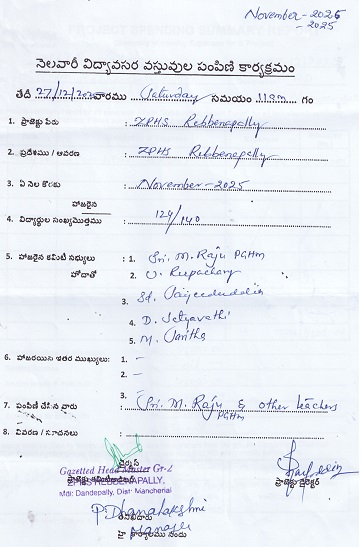 November-2025
-2025
నెలవారీ విద్యావసర వస్తువుల పంపిణీ కార్యక్రమం
తేదీ 27/12/2025 వారము Saturday సమయం 11am గం
1. ప్రాజెక్టు పేరు : ZPHS Rebbenapally
2. ప్రదేశము / ఆవరణ : ZPHS Rebbenapally
3. ఏ నెల కొరకు : November-2025
హాజరైన
4. విద్యార్థుల సంఖ్య/మొత్తము : 124/140
5. హాజరైన కమిటీ సభ్యులు : 1. Sri. M. Raju PGHM
హోదాతో 2. V. Rupachary
3. Sd.
4. D. Satyavathi
5. M. Saritha
6. హాజరయిన ఇతర ముఖ్యులు: 1. –
2. –
3.
7. పంపిణీ చేసిన వారు : Sri. M. Raju & other teachers
PGHM
8. వివరణ / సూచనలు :
Gazetted Head Master Gr-2
ZPHS REBBENAPALLY,
Mdl: Dandepally, Dist: Mancherial
ప్రాజెక్టు డైరెక్టర్
P. Dhanalakshmi
Manager